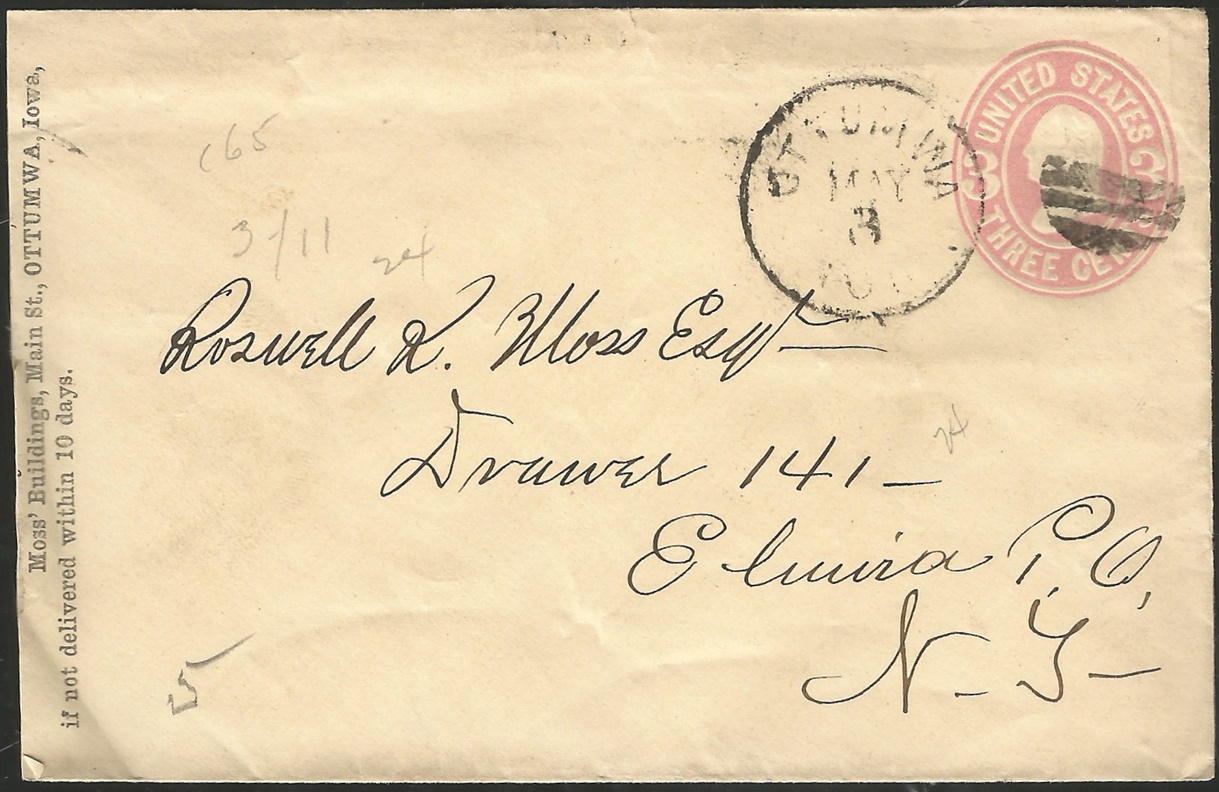 Moss' Buildings, Main St., OTTUMWA, Iowa,
if not delivered within 10 days.
UNITED STATES
3 3
THREE CEN
OTTUMWA
MAY
3
65
3/11
24
Roswell R. Moss Esqr
Drawer 141
24
Elmira P.O,
N-Y-